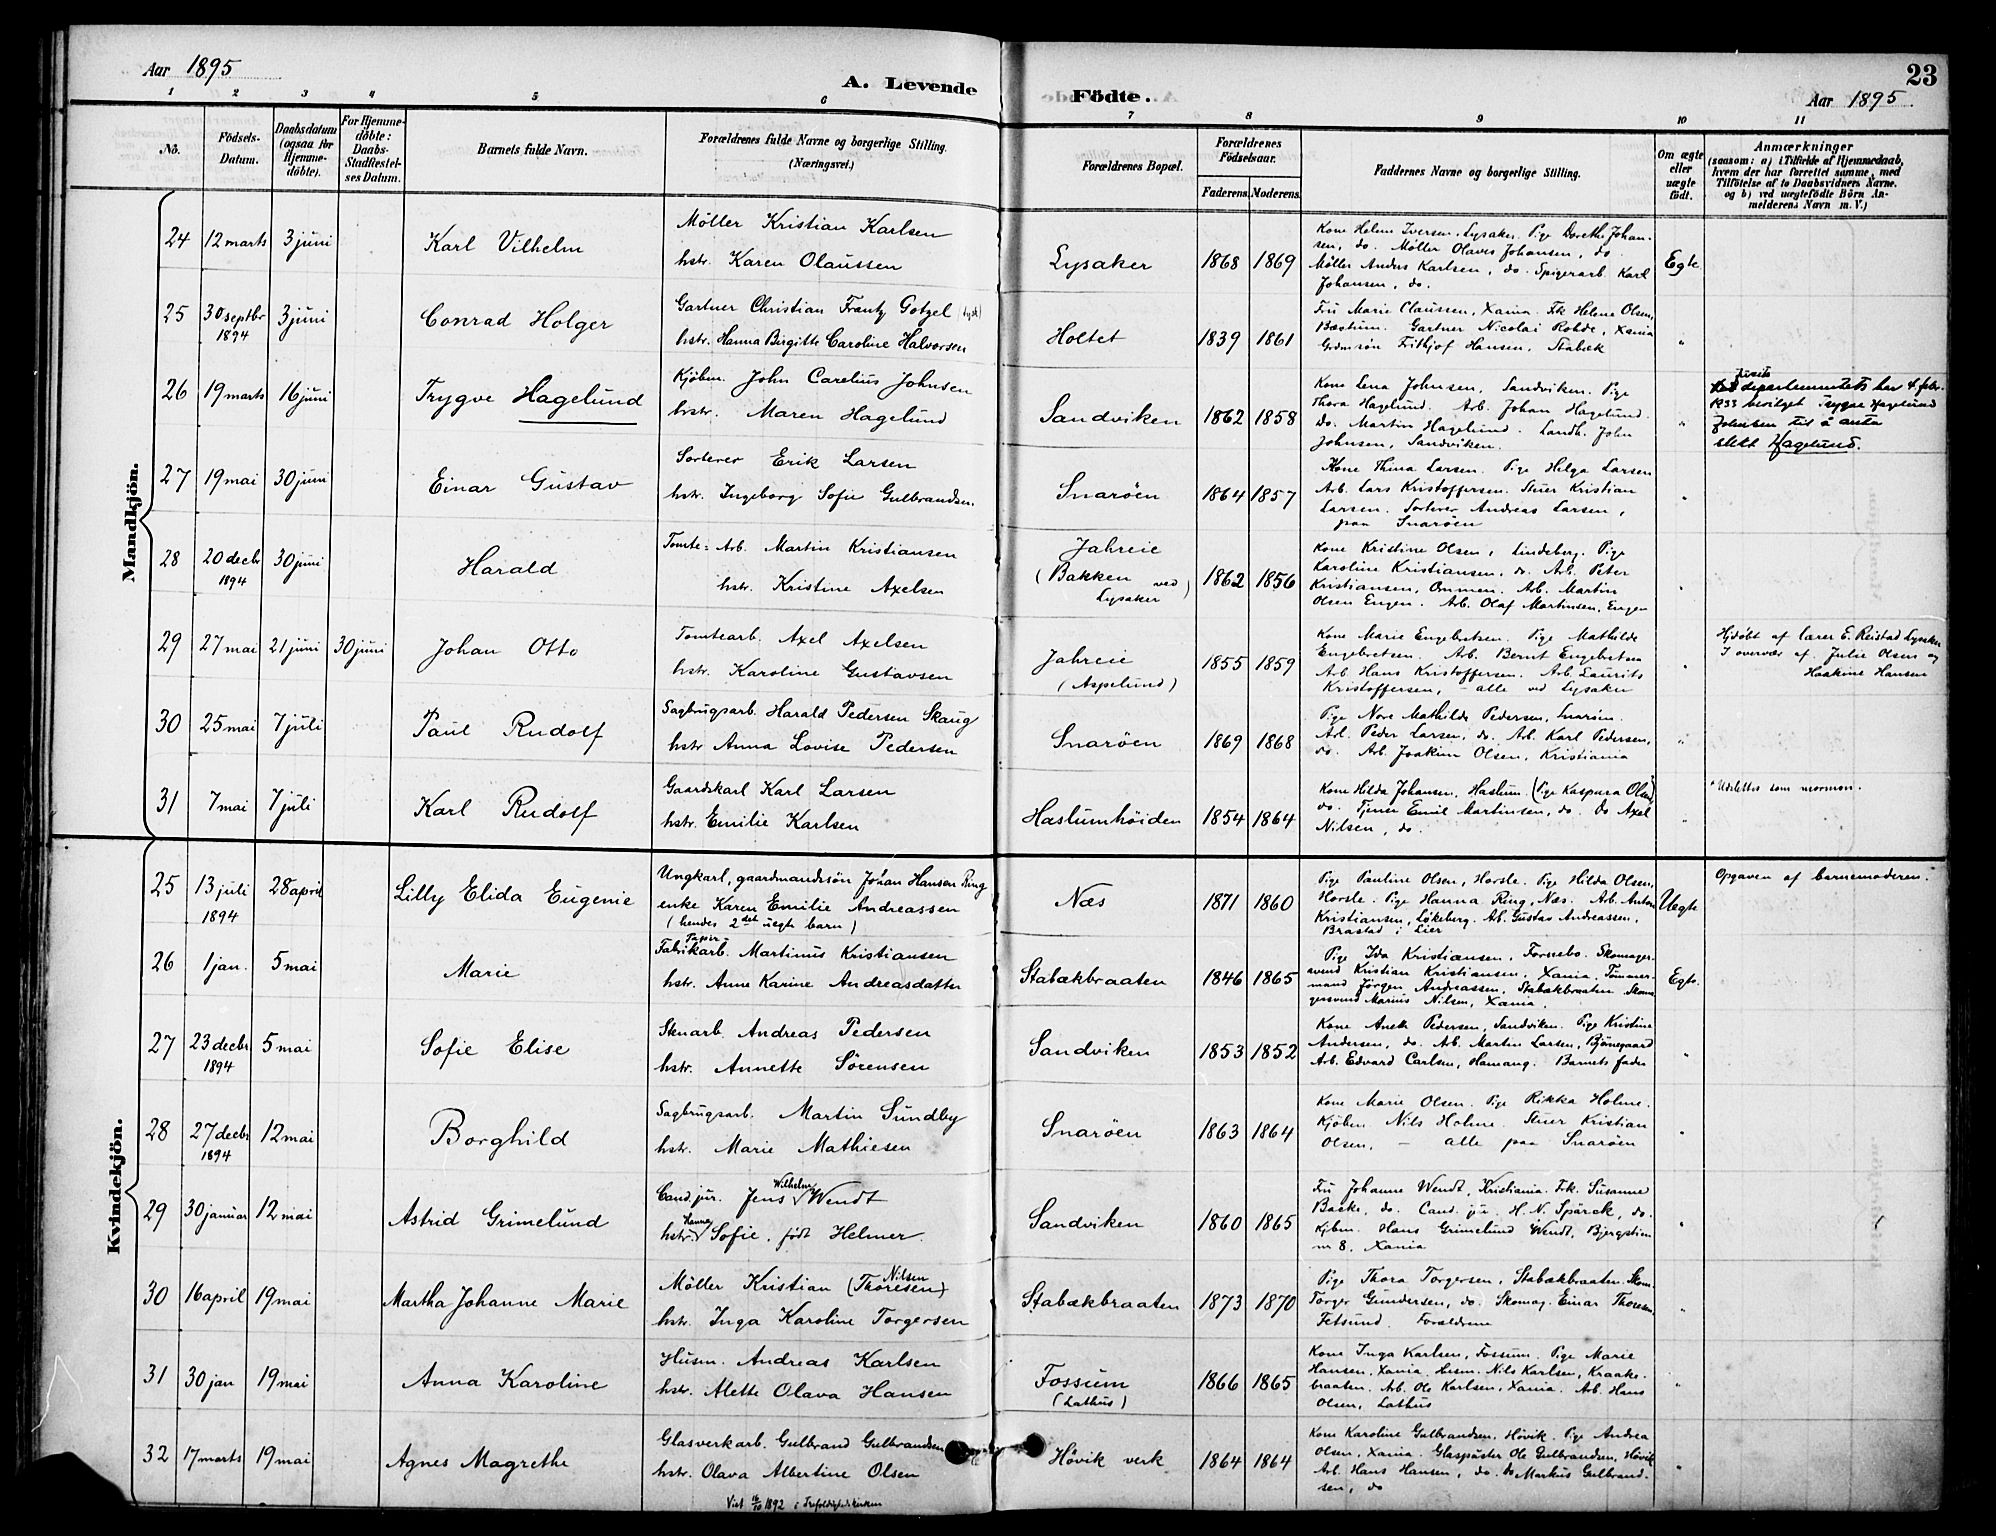 Aar 1895
A. Levende Födte.
23
Aar 1895
1 2 3 4 5 6 7 8 9 10 11
No.
Födsels-Datum.
Daabsdatum (ogsaa for Hjemme-döbte).
For Hjemme-döbte: Daabs-Stadfæstel-ses Datum.
Barnets fulde Navn.
Forældrenes fulde Navne og borgerlige Stilling.
(Næringsvei.)
Forældrenes Bopæl.
Forældrenes Födselsaar.
Faderens. Moderens.
Faddernes Navne og borgerlige Stilling.
Om ægte eller uægte födt.
Anmærkninger
(saasom: a) i Tilfælde af Hjemmedaab,
hvem der har forrettet samme, med
Tilföielse af to Daabsvidners Navne.
og b) ved uægtefödte Börn An-
melderens Navn m. V.)
Mandkjön.
24 12 marts 3 juni Karl Vilhelm
Møller Kristian Karlsen
hstr. Karen Olaussen
Lysaker 1868 1869
Kone Helene Iversen, Lysaker. Pige Dorethe Johan-
sen, do. Møller Olaves Johansen, do.
Møller Anders Karlsen, do. Spigerarb. Karl
Johansen, do.
Egte
25 30 septbr 1894 3 juni Conrad Holger
Gartner Christian Frantz Gotzel (tysk)
hstr. Hanna Birgitte Caroline Halvorsen
Holtet 1839 1861
Fru Marie Claussen, Xania. Frk Helene Olsen,
Bærum. Gartner Nicolai Rohde, Xania
Grdmsøn Frithjof Hansen, Stabæk
"
26 19 marts 16 juni Trygve Hagelund
Kjøbm. John Carelius Johnsen
hstr. Maren Hagelund
Sandviken 1862 1858
Kone Lena Johnsen, Sandviken. Pige
Thora Hagelund. Arb. Johan Hagelund.
Do. Martin Hagelund. Landh. John
Johnsen, Sandviken.
"
Justis
departementets har 4 febr.
1933 bevilget Trygve Hagelund
Johnsen til å anta
slekt Hagelund.
27 19 mai 30 juni Einar Gustav
Sorterer Erik Larsen
hstr. Ingeborg Sofie Gulbrandsen.
Snarøen 1864 1857
Kone Thina Larsen. Pige Helga Larsen
Arb. Lars Kristoffersen. Stuer Kristian
Larsen. Sorterer Andreas Larsen,
paa Snarøen
"
28 20 decbr 1894 30 juni Harald
Tomte-Arb. Martin Kristiansen
hstr. Kristine Axelsen
Jahreie
(Bakken ved
Lysaker)
1862 1856
Kone Kristine Olsen, Lindeberg. Pige
Karoline Kristiansen, do. Arb. Peter
Kristiansen, Ommen. Arb. Martin
Olsen Engen. Arb. Olaf Martinsen, Engen
"
29 27 mai 21 juni 30 juni Johan Otto
Tomtearb. Axel Axelsen
hstr. Karoline Gustavsen
Jahreie
(Aspelund)
1855 1859
Kone Marie Engebretsen. Pige Mathilde
Engebretsen. Arb. Bernt Engebretsen
Arb. Hans Kristoffersen. Arb. Laurits
Kristoffersen, – alle ved Lysaker
"
Hjdøbt af lærer E. Reistad Lysaker
I overvær af Julie Olsen og
Haakine Hansen
30 25 mai 7 juli Paul Rudolf
Sagbrugsarb. Harald Pedersen Skaug
hstr Anna Lovise Pedersen
Snarøen 1869 1868
Pige Nore Mathilde Pedersen, Snarøen.
Arb. Peder Larsen, do. Arb. Karl Pedersen,
do. Arb. Joakim Olsen, Kristiania
"
31 7 mai 7 juli Karl Rudolf
Gaardskarl Karl Larsen
hstr. Emilie Karlsen
Haslumhöiden 1854 1864
Kone Hilda Johansen, Haslum. (Pige Kaspara Olsen)
do. Tjener Emil Martinsen, do. Do Axel
Nilsen, do.
"
Udslettes som mormon.
Kvindekjön.
25 13 juli 1894 28 april Lilly Elida Eugenie
Ungkarl, gaardmandssøn Johan Hansen Ring
enke Karen Emilie Andreassen
(hendes 2det uegte barn)
Næs 1871 1860
Pige Pauline Olsen, Horsle. Pige Hilda Olsen,
Horsle. Pige Hanna Ring, Næs. Arb. Anton
Kristiansen, Løkeberg. Arb. Gustav Andreassen,
Brastad i Lier
Uegte
Opgaven af barnemoderen.
26 1 jan. 5 mai Marie
Papir
Fabrikarb. Martinus Kristiansen
hstr. Anne Karine Andreasdatter
Stabækbraaten 1846 1865
Pige Ida Kristiansen, Fornebo. Skomager-
svend Kristian Kristiansen, Xania. Tømmer-
mand Jörgen Andreassen, Stabækbraaten. Skoma
gersvend Marius Nilsen, Xania.
Egte
27 23 decbr 1894 5 mai Sofie Elise
Stenarb. Andreas Pedersen
hstr. Annette Sörensen
Sandviken 1853 1852
Kone Aneth Pedersen, Sandviken. Pige Kristine
Andersen, do. Arb. Martin Larsen, Bjønegaard
Arb. Edvard Carlsen, Hamang. Barnets fader
"
28 27 decbr 1894 12 mai Borghild
Sagbrugsarb. Martin Sundby
hstr. Marie Mathiesen
Snarøen 1863 1864
Kone Marie Olsen. Pige Rikka Holme.
Kjøbm. Nils Holme. Stuer Kristian
Olsen, – alle paa Snarøen
"
29 30 januar 12 mai Astrid Grimelund
Cand. jur. Jens Wilhelm Wendt
hstr. Hanna Sofie, født Helmer.
Sandviken 1860 1865
Fru Johanne Wendt, Kristiania. Frk. Susanne
Backe, do. Cand. jur. H. N. Spärck, do.
Kjbm. Hans Grimelund Wendt, Bjergstien
nr 8, Xania
"
30 16 april 19 mai Martha Johanne Marie
Møller Kristian (Thoresen) Nilsen
hstr. Inga Karoline Torgersen
Stabækbraaten 1873 1870
Pige Thora Torgersen, Stabækbraaten. Skom.
Torger Gundersen, do. Skomag. Einar Thoresen,
Fetsund. Forældrene
"
31 30 jan 19 mai Anna Karoline
Husm. Andreas Karlsen
hstr. Alette Olava Hansen
Fossum
(Lathus)
1866 1865
Kone Inga Karlsen, Fossum. Pige Marie
Hansen, Xania. Husm. Nils Karlsen, Kraake-
braaten. Arb. Ole Karlsen, Xania. Arb. Hans
Olsen, Lathus
"
32 17 marts 19 mai Agnes Magrethe
Glasverkarb. Gulbrand Gulbrandsen
hstr. Olava Albertine Olsen
Viet 16/10 1892 i Trefoldighedskirken
Høvik verk 1864 1864
Kone Karoline Gulbrandsen, Høvik. Pige Andrea
Olsen, Xania. Glaspuster Ole Gulbrandsen, Høvik
Arb. Hans Hansen, do. Do Markus Gulbrand-
sen, do
"